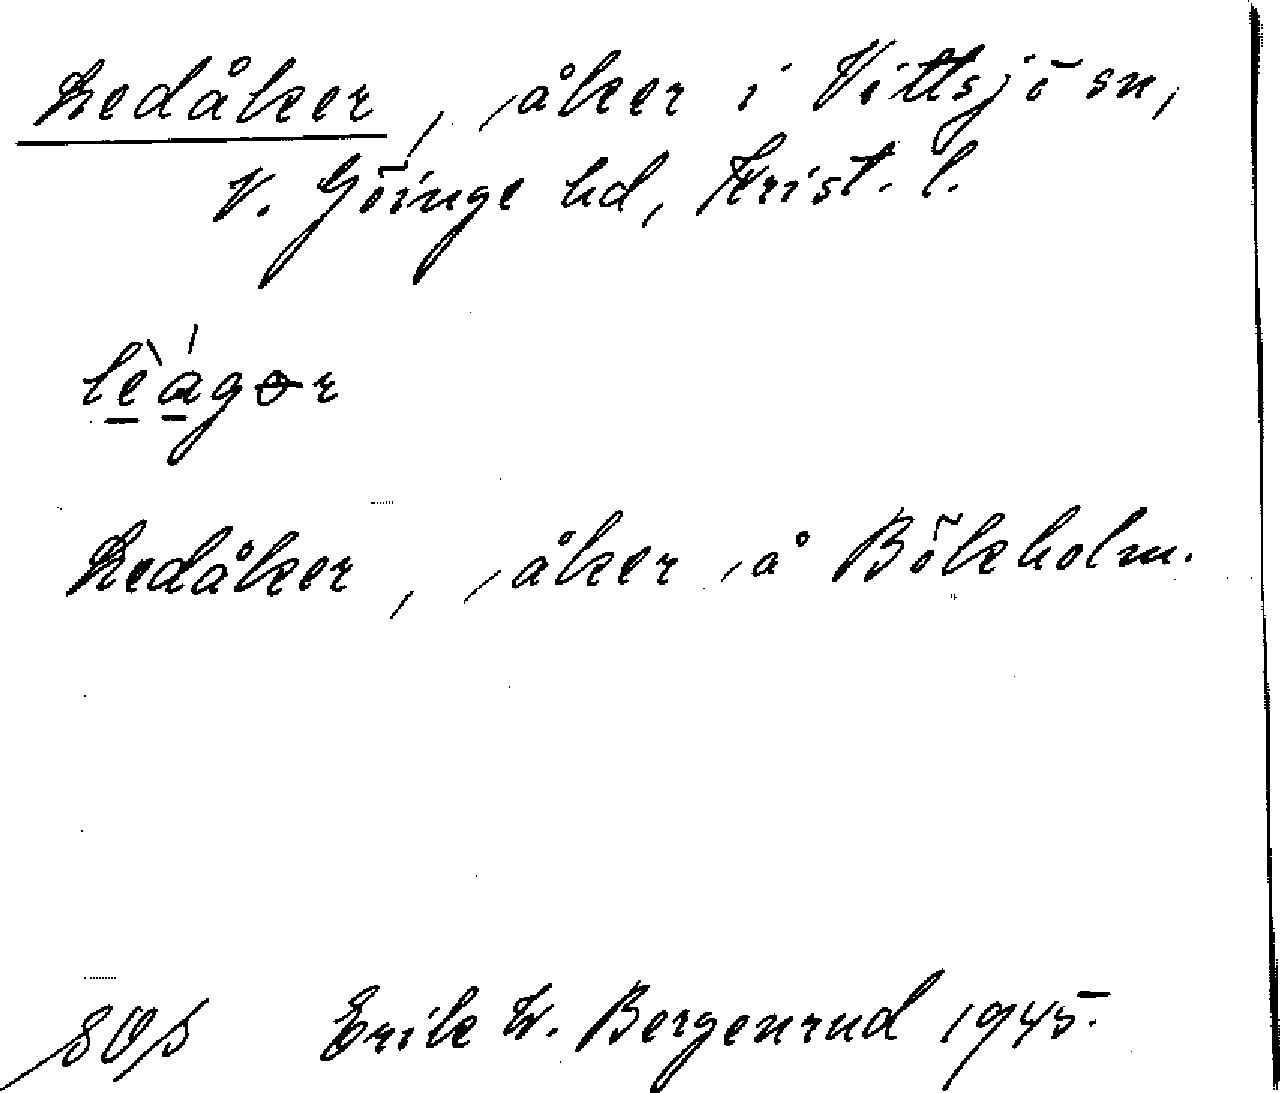 Ledåker, åker i Vittsjö sn,
V. Göinge hd, Krist. l.
lèágər
Ledåker, åker å Bökholm.
SOS Erik W. Bergenrud 1945.